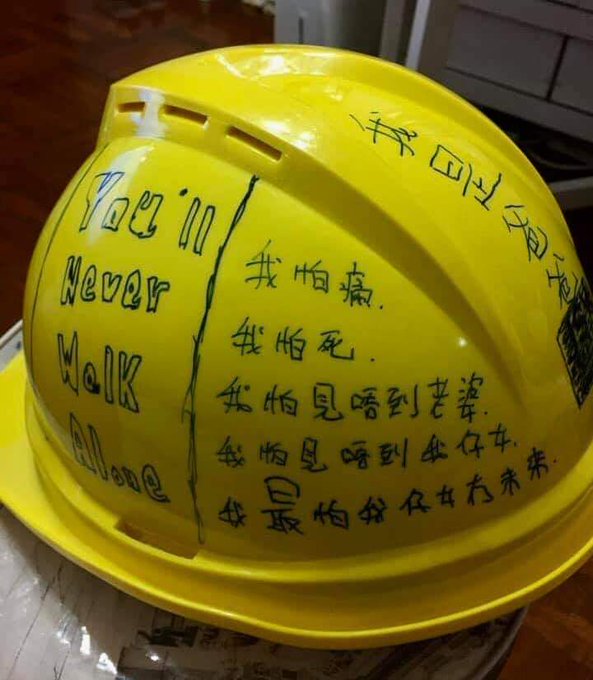 You'll
Never
Walk
Alone
我怕痛.
我怕死.
我怕見唔到老婆.
我怕見唔到我仔女.
我最怕我仔女冇未来.